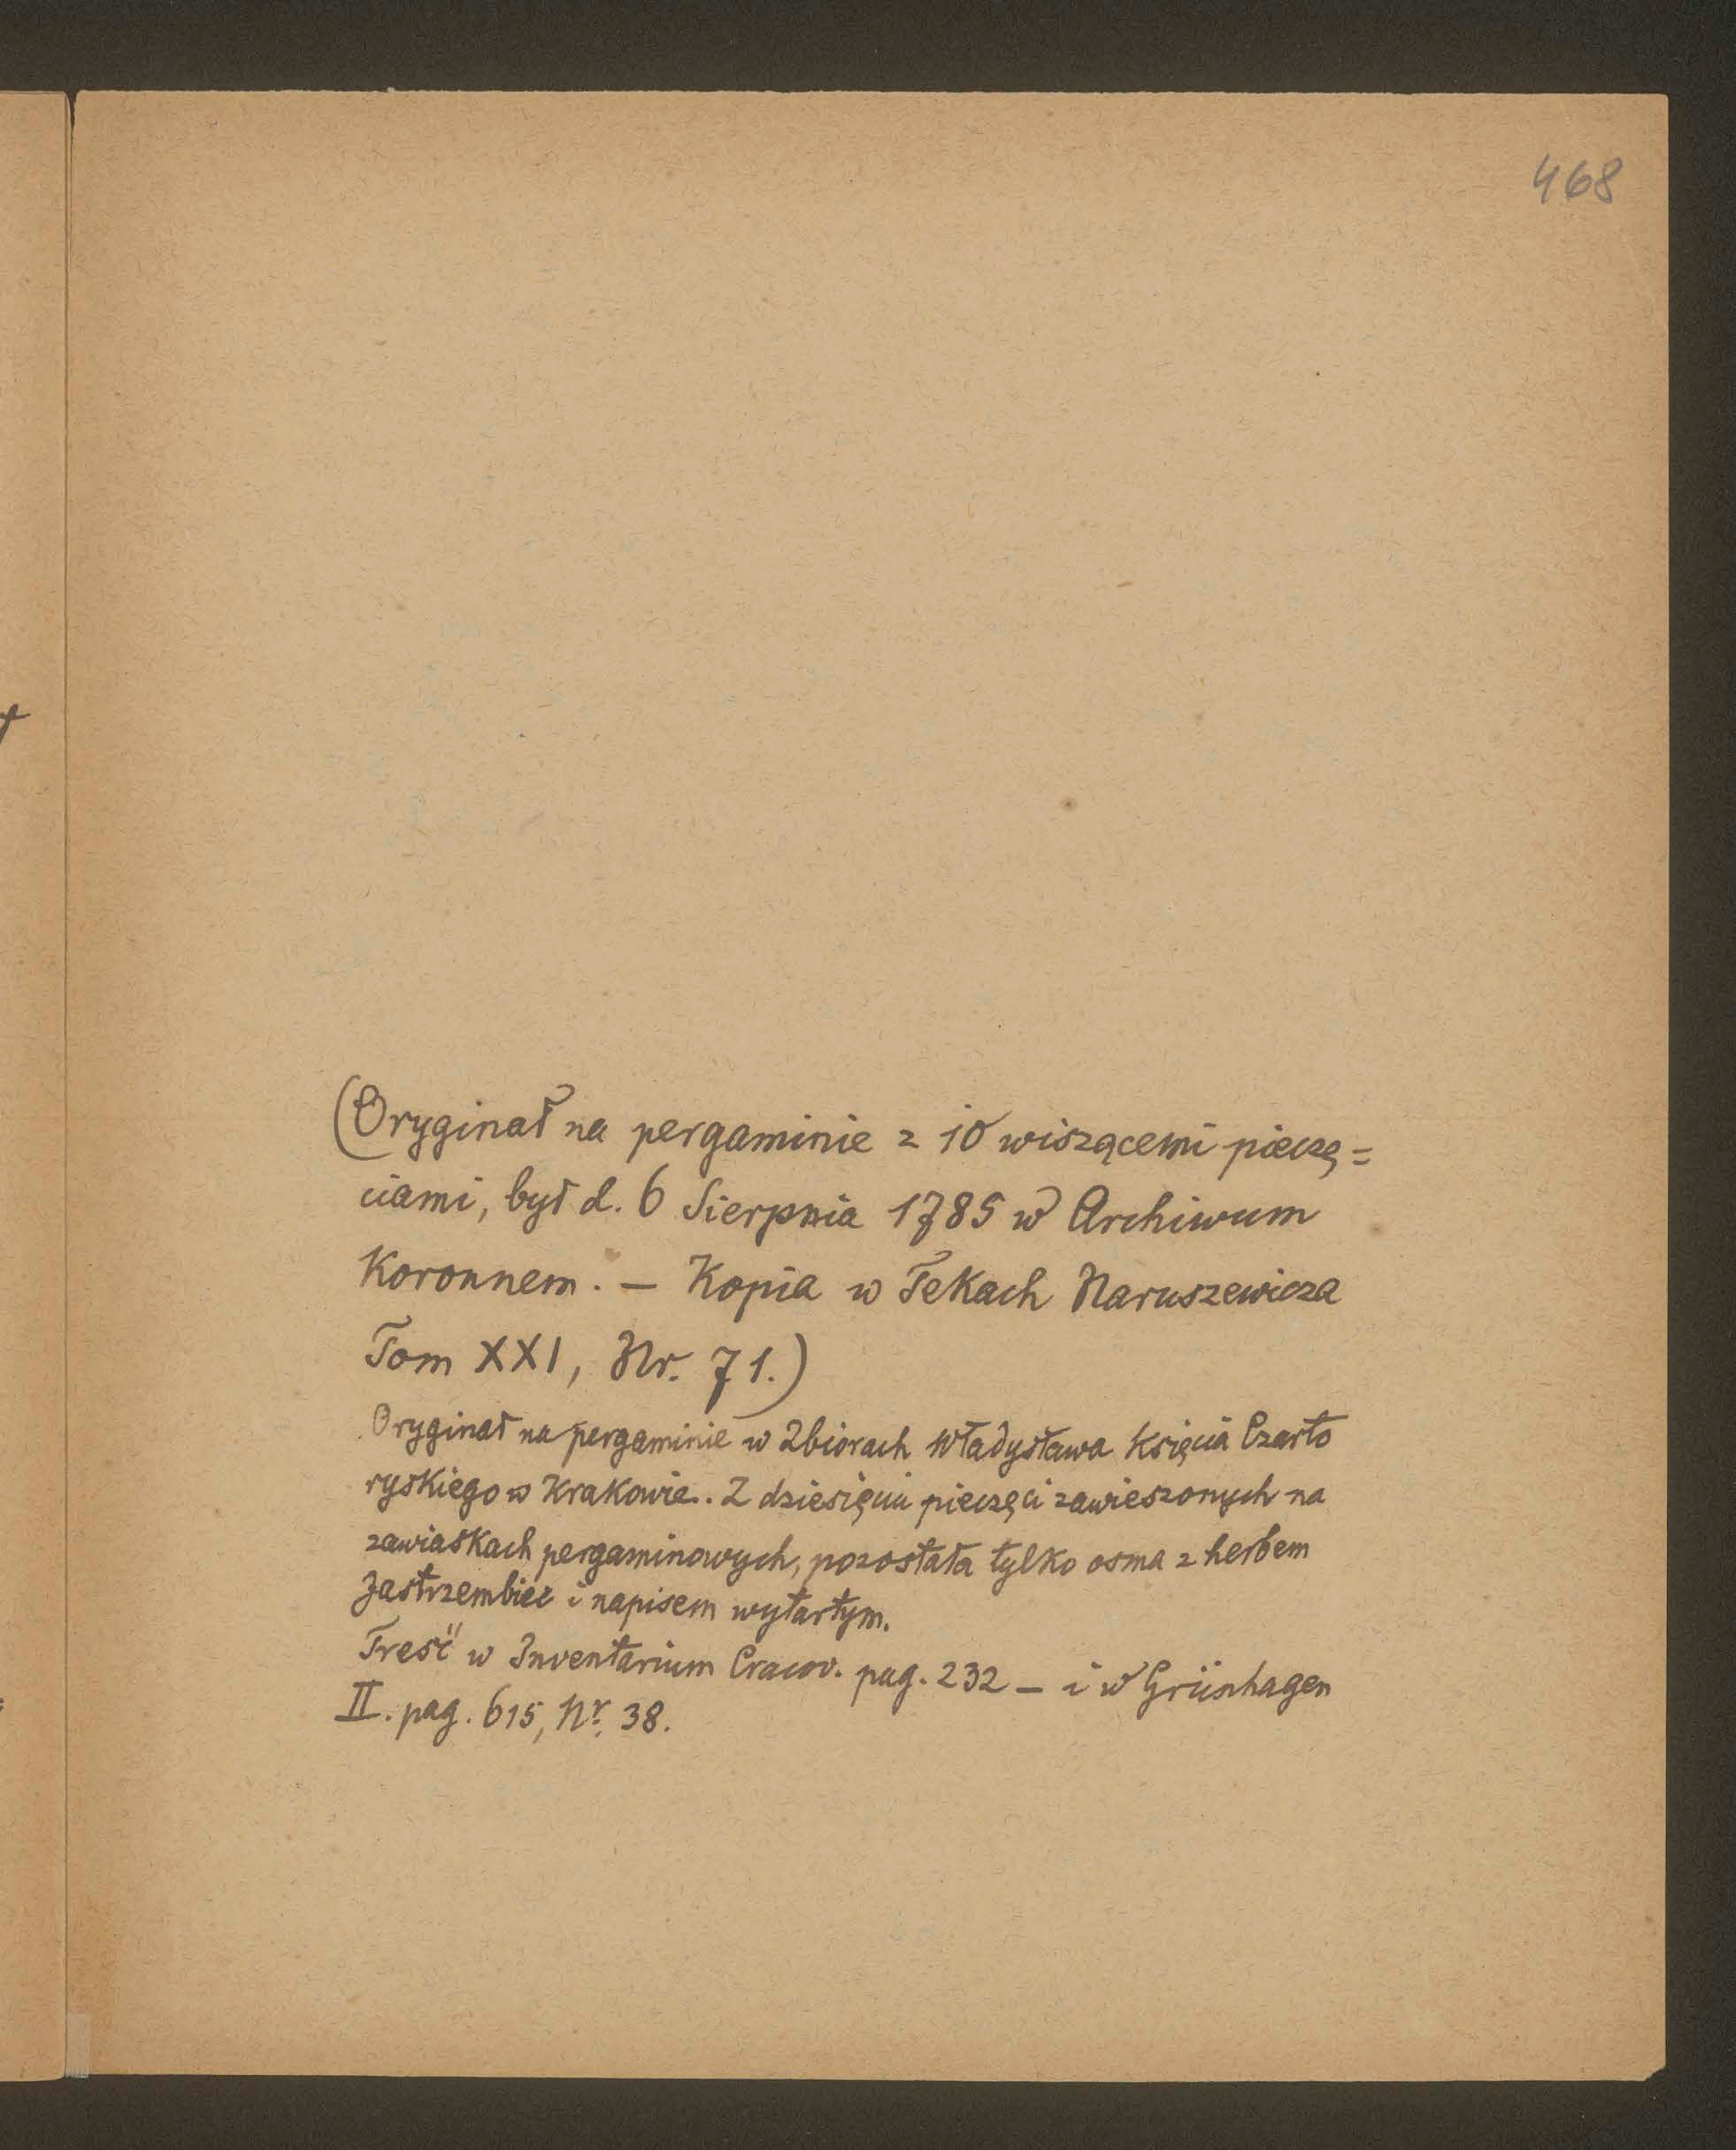 468
(Oryginał na pergaminie z 10 wiszącemi pieczę=
ciami, był d. 6 Sierpnia 1785 w Archiwum
Koronnem. — Kopia w Tekach Naruszewicza
Tom XXI, Nr. 71.)
Oryginał na pergaminie w Zbiorach Władysława Księcia Czarto
ryskiego w Krakowie. Z dziesięciu pieczęci zawieszonych na
zawiaskach pergaminowych, pozostała tylko osma z herbem
Jastrzembiec i napisem wytartym.
Treść w Inventarium Cracov. pag. 232 — i w Grünhagen
II. pag. 615, Nr. 38.